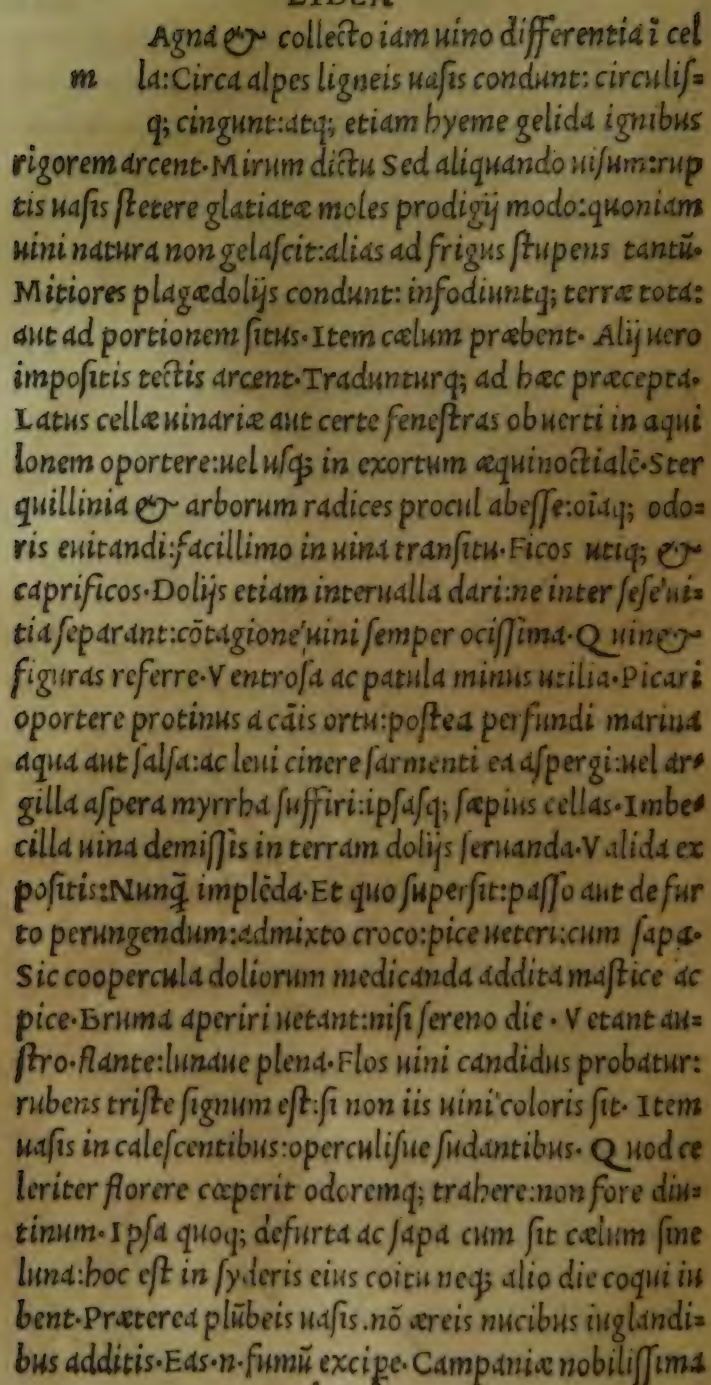 LIBER
Agna & collecto iam uino differentia ĩ cel
m la:Circa alpes ligneis uasis condunt: circulis=
q; cingunt:atq; etiam hyeme gelida ignibus
rigorem arcent·Mirum dictu Sed aliquando uisum:rup
tis uasis stetere glatiatæ moles prodigij modo:quoniam
uini natura non gelascit:alias ad frigus stupens tantũ·
Mitiores plagædolijs condunt: infodiuntq; terræ tota:
aut ad portionem situs·Item cælum præbent· Alij uero
impositis tectis arcent·Tradunturq; ad hæc præcepta·
Latus cellæ uinariæ aut certe fenestras obuerti in aqui
lonem oportere:uel usq; in exortum æquinoctialẽ·Ster
quillinia & arborum radices procul abesse:oĩaq; odo=
ris euitandi:facillimo in uina transitu·Ficos utiq; &
caprificos·Dolijs etiam interualla dari:ne inter sese ui=
tia separant:cõtagione uini semper ocissima·Quin &
figuras referre·Ventrosa ac patula minus utilia·Picari
oportere protinus a cãis ortu:postea perfundi marina
aqua aut salsa:ac leui cinere sarmenti ea aspergi:uel ar=
gilla aspera myrrha suffiri:ipsasq; sæpius cellas·Imbe=
cilla uina demissis in terram dolijs seruanda·Valida ex
positis:Nunq̃ implẽda·Et quo supersit:passo aut defur
to perungendum:admixto croco:pice ueteri:cum sapa·
Sic coopercula doliorum medicanda addita mastice ac
pice·Bruma aperiri uetant:nisi sereno die · Vetant au=
stro·flante:lunaue plena·Flos uini candidus probatur:
rubens triste signum est:si non iis uini coloris sit· Item
uasis in calescentibus:operculisue sudantibus· Quod ce
leriter florere cœperit odoremq; trahere:non fore diu=
tinum·Ipsa quoq; defurta ac sapa cum sit cælum sine
luna:hoc est in syderis eius coitu neq; alio die coqui iu
bent·Præterea plũbeis uasis.nõ æreis nucibus iuglandi=
bus additis·Eas·n·fumũ excipe·Campaniæ nobilissima